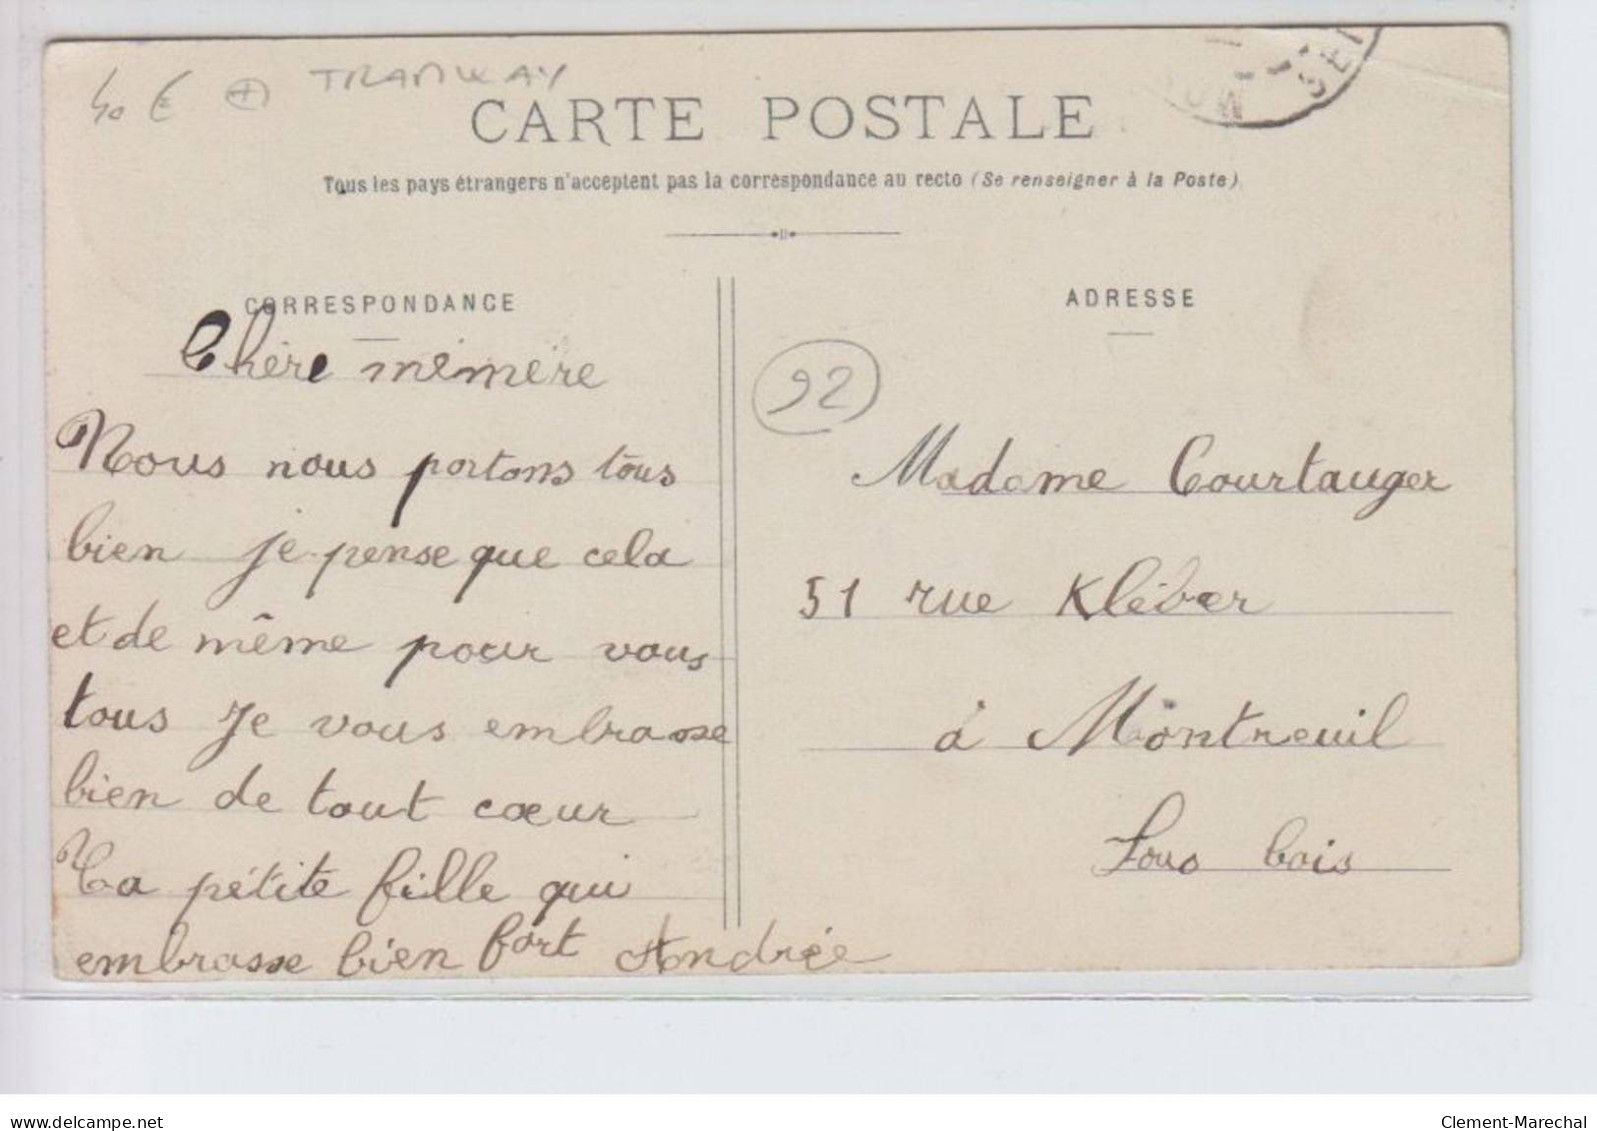 40 € + TRAMWAY
CARTE POSTALE
Tous les pays étrangers n'acceptent pas la correspondance au recto (Se renseigner à la Poste)
CORRESPONDANCE
Chère mémère
Nous nous portons tous
bien je pense que cela
et de même pour vous
tous Je vous embrasse
bien de tout cœur
Ta pétite fille qui
embrasse bien fort Andrée
ADRESSE
92
Madame Courtauger
51 rue Kléber
à Montreuil
Sous bois
delcampe.net
Clement-Marechal